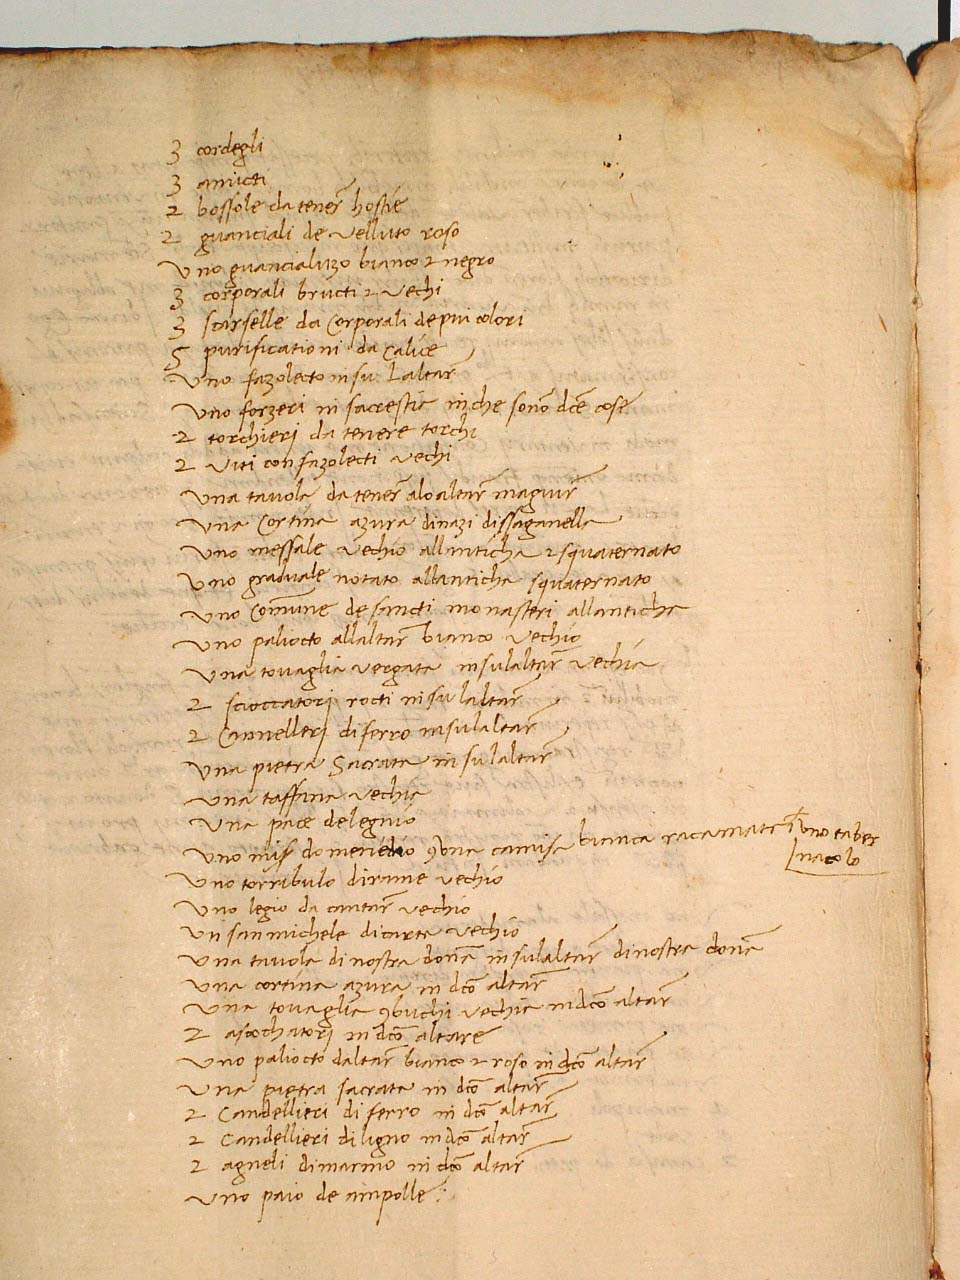 3 cordegli
3 amicti
2 bossole da tener hostie
2 guanciali de velluto roso
Uno guancialuzo bianco 2 negro
3 corporali bructi 2 vechi
3 scarselle da Corporali de piu colori
5 purificationi da Calice
Uno fazolecto in su laltar
Uno forzeri in sacrestie in che sono dce cose
2 torchieri da tenere torchi
2 Viti con fazolecti vechi
Una tavola da tener alo altar magiur
Una Cortina azura dinazi
Uno messale vechio allanticha 2 squaternato
Uno graduale notato allanticha squaternato
Uno Comune de sancti monasteri allanticha
Uno paliocto allaltar bianco vechio
Una tovaglia vergata insulaltar vechia
2 scioccatori rocti in su laltar
2 Cannelleri di ferro insulaltar
Una pietra Sacrata in sulaltar
Una taffina vechia
Una pace de legnio
Uno mis domenedio 9 una camisa bianca racamata 2 uno taber
nacolo
Uno torribulo di rame vechio
Uno legio da cantar vechio
Un san michele di carta vechio
Una tavola di nostra dona in sulaltar di nostra dona
Una cortina azura in dco altar
Una tovaglia 9 buchi vechia in dco altar
2 asochatori in dco altare
Uno paliocto daltar bianco 2 roso in dco altar
Una pietra sacrata in dco altar
2 Candellieri di ferro in dco altar
2 Candellieri di ligno in dco altar
2 agneli di marmo in dco altar
Uno paio de impolle